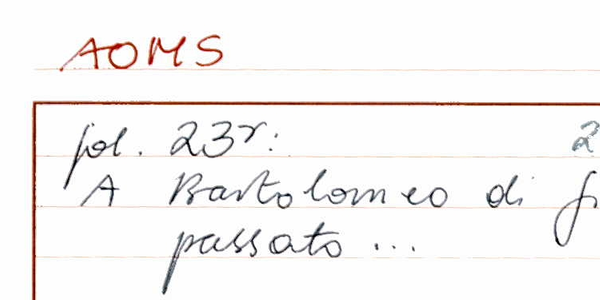 AOMS
fol. 23r: 2
A Bartolomeo di
passato ...